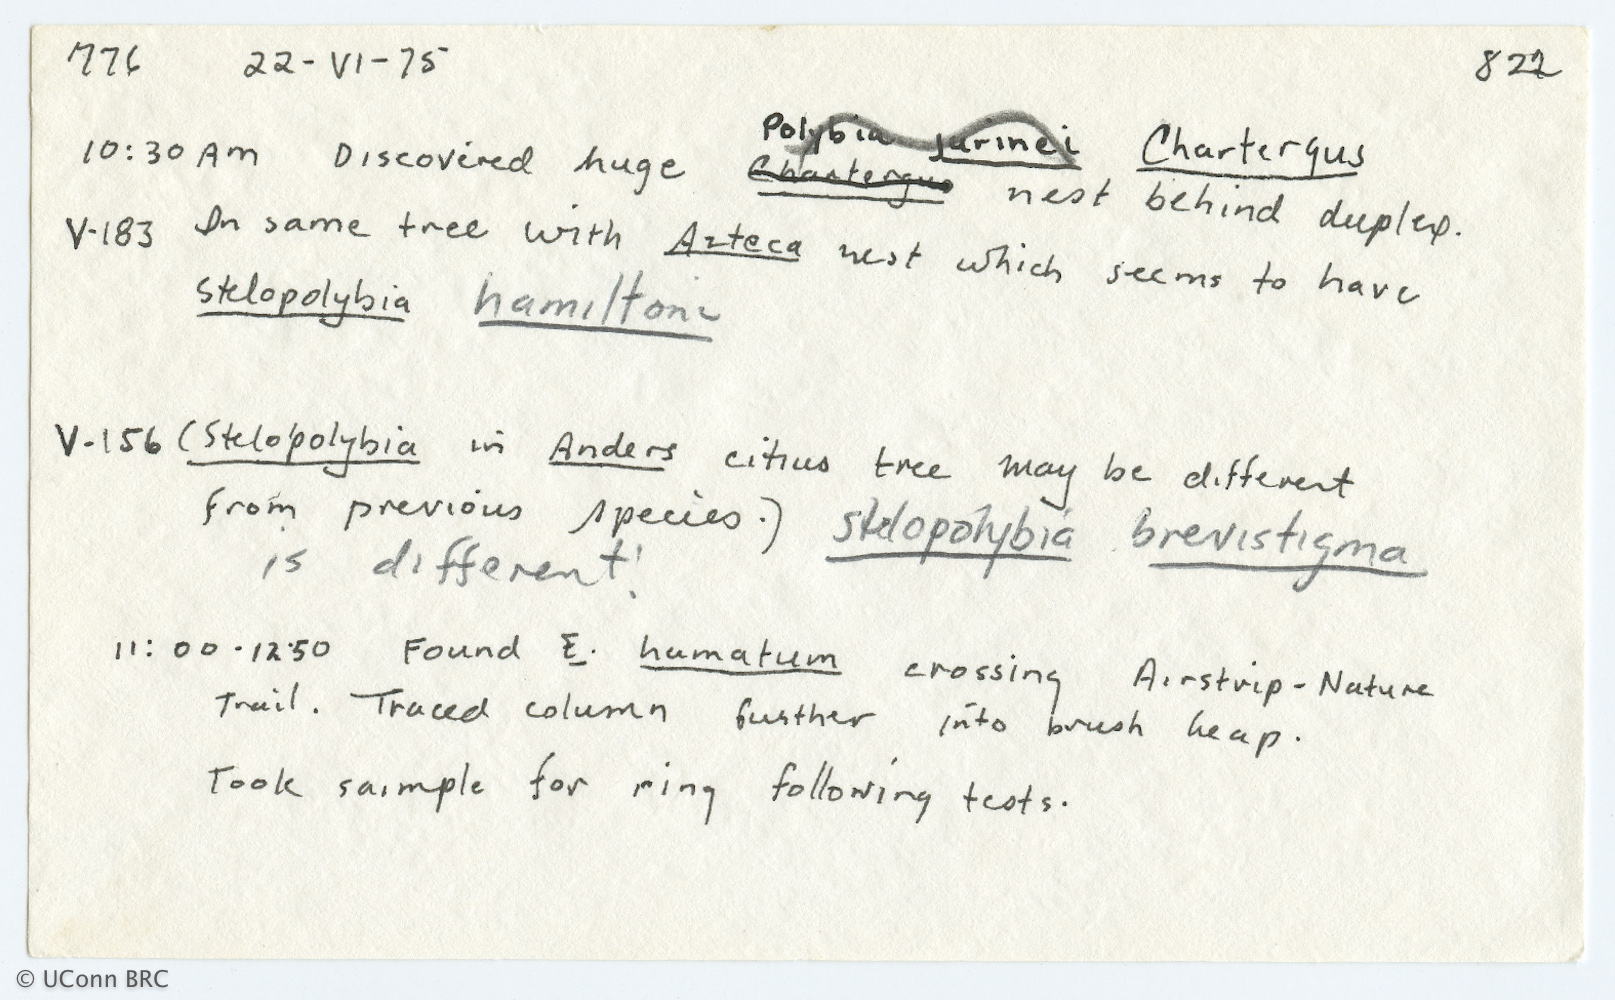 776 22-VI-75 822
Polybia jurinei Chartergus
10:30 Am Discovered huge Chartergus nest behind duplex.
V-183 In same tree with Azteca nest which seems to have
Stelopolybia hamiltoni
V-156 (Stelopolybia in Anders citrus tree may be different
from previous species.) Stelopolybia brevistigma
is different!
11:00-12:50 Found E. hamatum crossing Airstrip-Nature
Trail. Traced column further into brush heap.
Took sample for ring following tests.
© UConn BRC